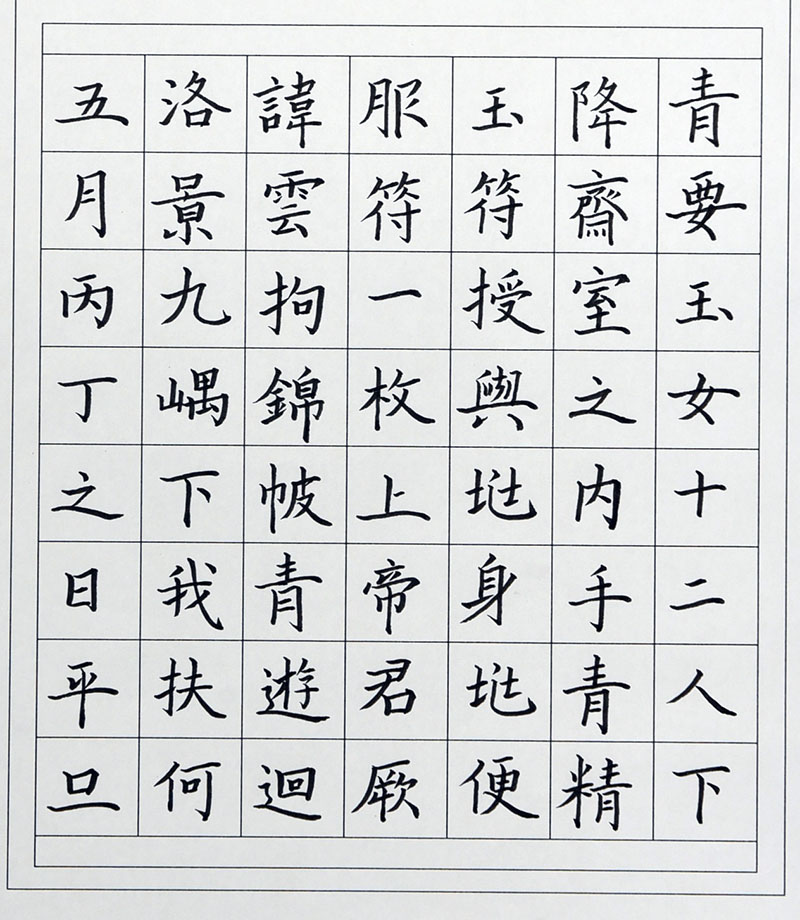 青要玉女十二人下
降齋室之内手青精
玉符授與兆身兆便
服符一枚上帝君厥
諱雲拘錦帔青遊迴
洛景九嵎下我扶何
五月丙丁之日平旦